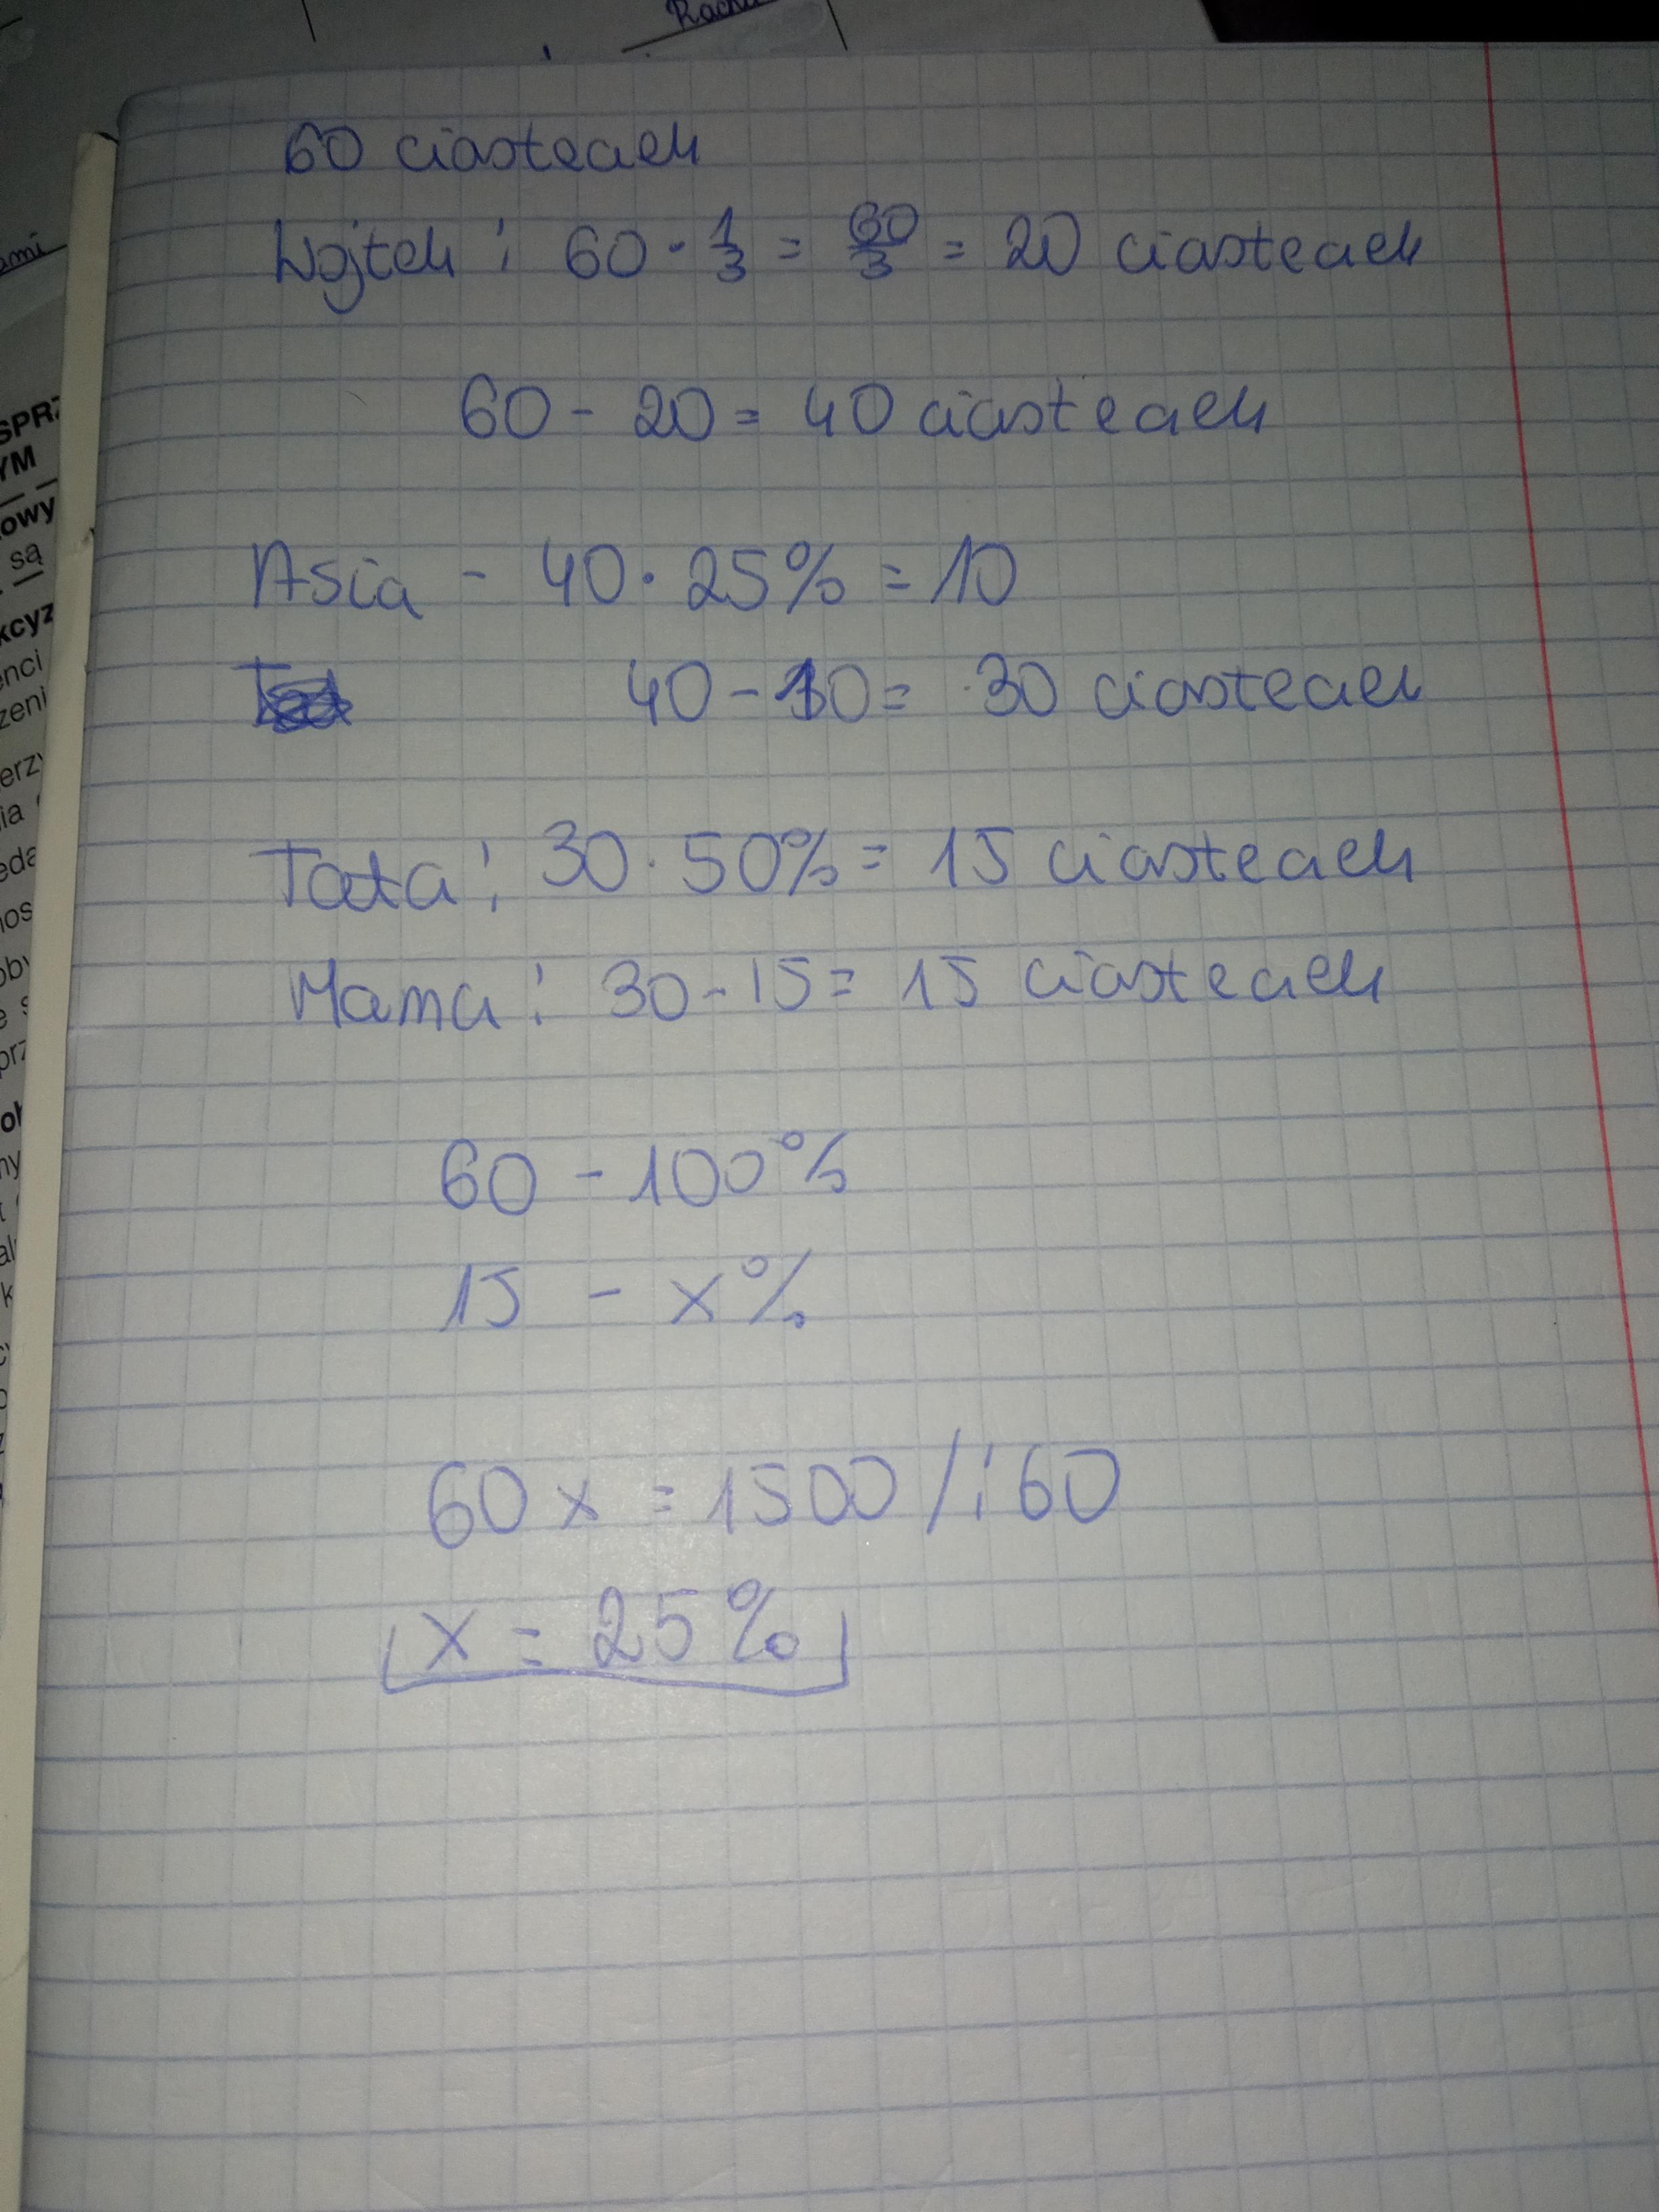 60 ciasteczek
Wojtek : 60 · 1/3 = 60/3 = 20 ciasteczek
60 - 20 = 40 ciasteczek
Asia - 40 · 25% = 10
40 - 10 = 30 ciasteczek
Tata : 30 · 50% = 15 ciasteczek
Mama : 30 - 15 = 15 ciasteczek
60 - 100%
15 - x%
60x = 1500 /:60
x = 25%